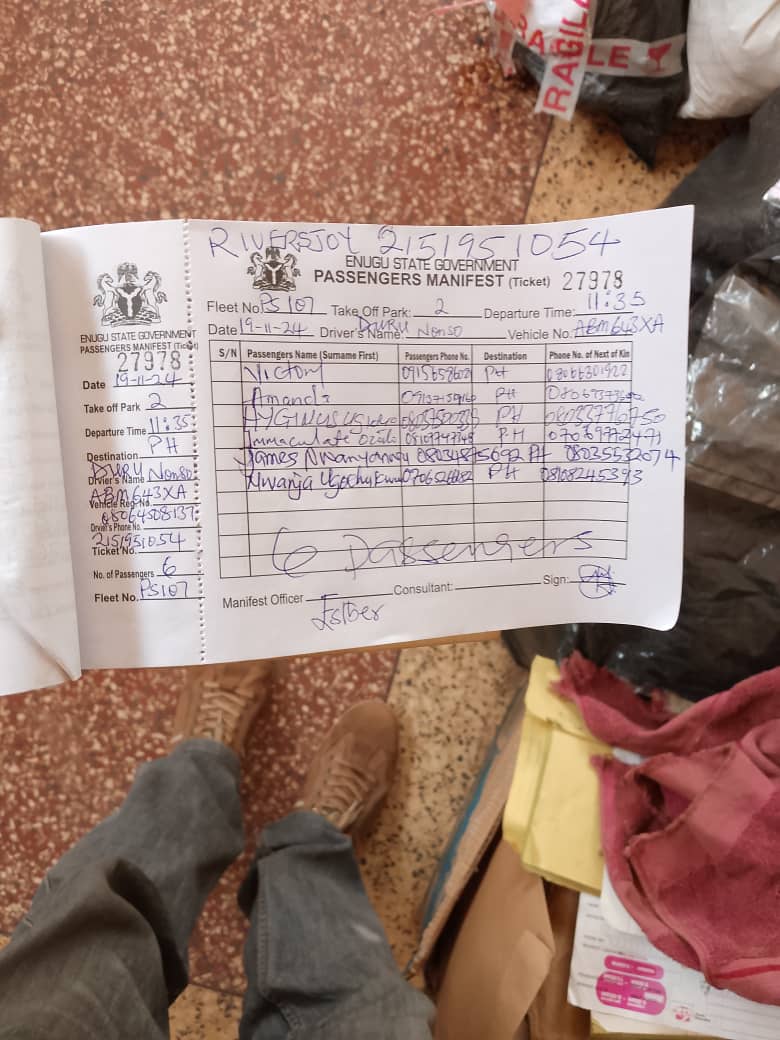 FRAGILE
RAGILE
RIVERSJOY 2151951054
ENUGU STATE GOVERNMENT
PASSENGERS MANIFEST (Ticket) 27978
Fleet No. PS107 Take Off Park: 2 Departure Time: 11:35
Date 19-11-24 Driver's Name: DURU Nonso Vehicle No. ABM643XA
S/N Passengers Name (Surname First) Passengers Phone No. Destination Phone No. of Next of Kin
Victory PH
Amanda PH
HYGINUS PH
Immaculate PH
James 08034875692 PH 08035532074
Nwanja Ugochukwu PH 08108245393
6 Passengers
Manifest Officer Esther Consultant: Sign:
ENUGU STATE GOVERNMENT
PASSENGERS MANIFEST (Ticket)
27978
Date 19-11-24
Take off Park 2
Departure Time 11:35
Destination PH
Drvier's Name DURU Nonso
Vehicle Reg. No. ABM643XA
Drvier's Phone No. 08064508137
Ticket No. 2151951054
No. of Passengers 6
Fleet No. PS107